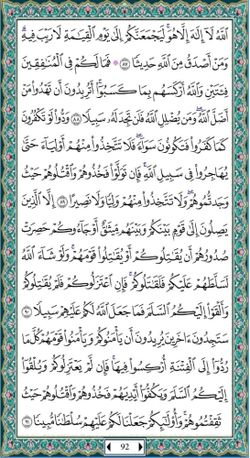 ٱللَّهُ لَآ إِلَٰهَ إِلَّا هُوَۚ لَيَجْمَعَنَّكُمْ إِلَىٰ يَوْمِ ٱلْقِيَٰمَةِ لَا رَيْبَ فِيهِۗ
وَمَنْ أَصْدَقُ مِنَ ٱللَّهِ حَدِيثًا ٨٧ ۞ فَمَا لَكُمْ فِي ٱلْمُنَٰفِقِينَ
فِئَتَيْنِ وَٱللَّهُ أَرْكَسَهُم بِمَا كَسَبُوٓا۟ۚ أَتُرِيدُونَ أَن تَهْدُوا۟ مَنْ
أَضَلَّ ٱللَّهُۖ وَمَن يُضْلِلِ ٱللَّهُ فَلَن تَجِدَ لَهُۥ سَبِيلًا ٨٨ وَدُّوا۟ لَوْ تَكْفُرُونَ
كَمَا كَفَرُوا۟ فَتَكُونُونَ سَوَآءًۖ فَلَا تَتَّخِذُوا۟ مِنْهُمْ أَوْلِيَآءَ حَتَّىٰ
يُهَاجِرُوا۟ فِي سَبِيلِ ٱللَّهِۚ فَإِن تَوَلَّوْا۟ فَخُذُوهُمْ وَٱقْتُلُوهُمْ حَيْثُ
وَجَدتُّمُوهُمْۖ وَلَا تَتَّخِذُوا۟ مِنْهُمْ وَلِيًّا وَلَا نَصِيرًا ٨٩ إِلَّا ٱلَّذِينَ
يَصِلُونَ إِلَىٰ قَوْمٍۭ بَيْنَكُمْ وَبَيْنَهُم مِّيثَٰقٌ أَوْ جَآءُوكُمْ حَصِرَتْ
صُدُورُهُمْ أَن يُقَٰتِلُوكُمْ أَوْ يُقَٰتِلُوا۟ قَوْمَهُمْۚ وَلَوْ شَآءَ ٱللَّهُ
لَسَلَّطَهُمْ عَلَيْكُمْ فَلَقَٰتَلُوكُمْۚ فَإِنِ ٱعْتَزَلُوكُمْ فَلَمْ يُقَٰتِلُوكُمْ
وَأَلْقَوْا۟ إِلَيْكُمُ ٱلسَّلَمَ فَمَا جَعَلَ ٱللَّهُ لَكُمْ عَلَيْهِمْ سَبِيلًا ٩٠
سَتَجِدُونَ ءَاخَرِينَ يُرِيدُونَ أَن يَأْمَنُوكُمْ وَيَأْمَنُوا۟ قَوْمَهُمْ كُلَّ مَا
رُدُّوٓا۟ إِلَى ٱلْفِتْنَةِ أُرْكِسُوا۟ فِيهَاۚ فَإِن لَّمْ يَعْتَزِلُوكُمْ وَيُلْقُوٓا۟
إِلَيْكُمُ ٱلسَّلَمَ وَيَكُفُّوٓا۟ أَيْدِيَهُمْ فَخُذُوهُمْ وَٱقْتُلُوهُمْ حَيْثُ
ثَقِفْتُمُوهُمْۚ وَأُو۟لَٰٓئِكُمْ جَعَلْنَا لَكُمْ عَلَيْهِمْ سُلْطَٰنًا مُّبِينًا ٩١
92